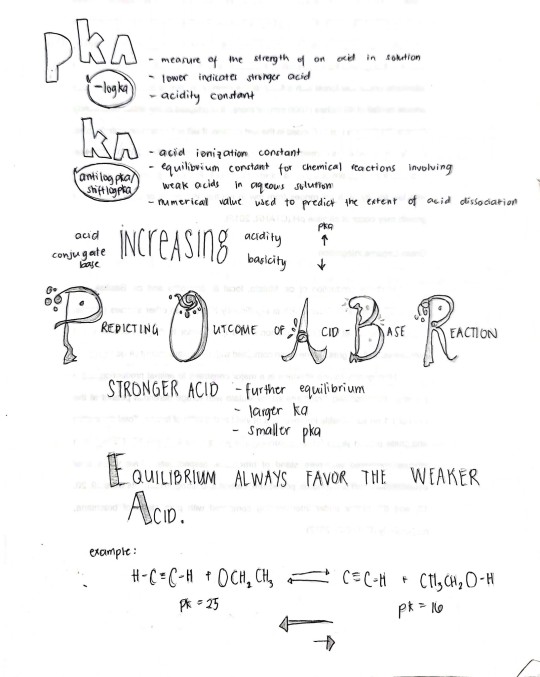 pka
-logka
- measure of the strength of an acid in solution
- lower indicates stronger acid
- acidity constant
ka
antilogpka/
shiftlogpka
- acid ionization constant
- equilibrium constant for chemical reactions involving
weak acids in aqeous solution
- numerical value used to predict the extent of acid dissociation
acid INCREASING acidity pka ↑
conjugate base basicity ↓
PREDICTING OUTCOME OF ACID-BASE REACTION
STRONGER ACID - further equilibrium
- larger ka
- smaller pka
EQUILIBRIUM ALWAYS FAVOR THE WEAKER
ACID.
example:
H-C≡C-H + OCH₂CH₃ ⇌ C≡C-H + CH₃CH₂O-H
pk = 25 pk = 16
← 
→